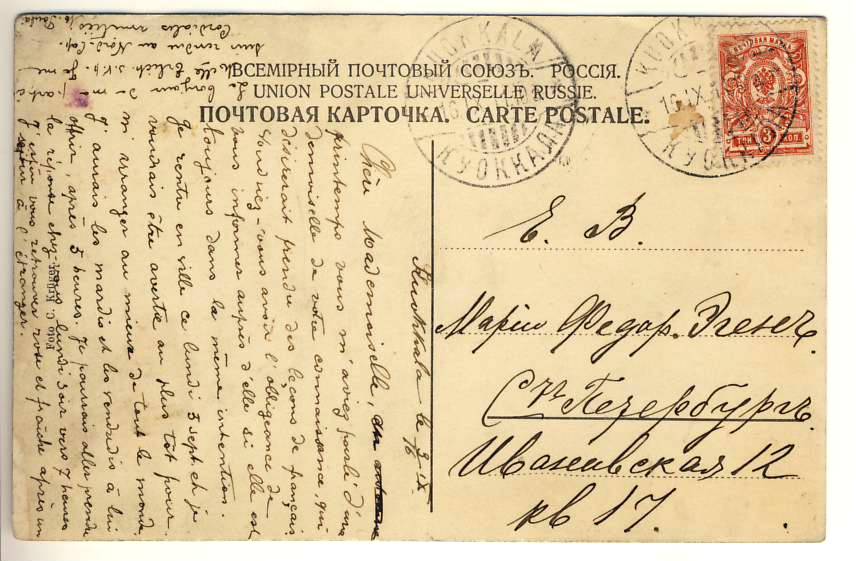 ВСЕМІРНЫЙ ПОЧТОВЫЙ СОЮЗЪ. РОССІЯ.
UNION POSTALE UNIVERSELLE RUSSIE.
ПОЧТОВАЯ КАРТОЧКА. CARTE POSTALE.
KUOKKALA
КУОККАЛА
ПОЧТОВАЯ МАРКА
3
ТРИ КОП
Е. В.
Маріи Федор.
С. П. Петербургъ.
Ивановская 12
кв 17.
Kuokkala le
Chère Mademoiselle,
printemps vous m'aviez parlé d'une
demoiselle de votre connaissance, qui
désirerait prendre des leçons de français
voudriez-vous avoir l'obligeance de
vous informer auprès d'elle si elle est
toujours dans la même intention.
Je rentre en ville ce lundi 5 sept. et je
voudrais être avertie au plus tôt pour
m'arranger au mieux de tout le monde
J'aurais les mardis et les vendredis à lui
offrir, après 5 heures. Je pourrais aller prendre
la réponse chez vous lundi soir vers 7 heures
J'espère vous retrouver rose et fraîche après un
séjour à l'étranger.
bonjour de ma part à
Melle Erlich s.v.p. Je me
suis rendue au Nord-Cap.
Cordiales amitiés